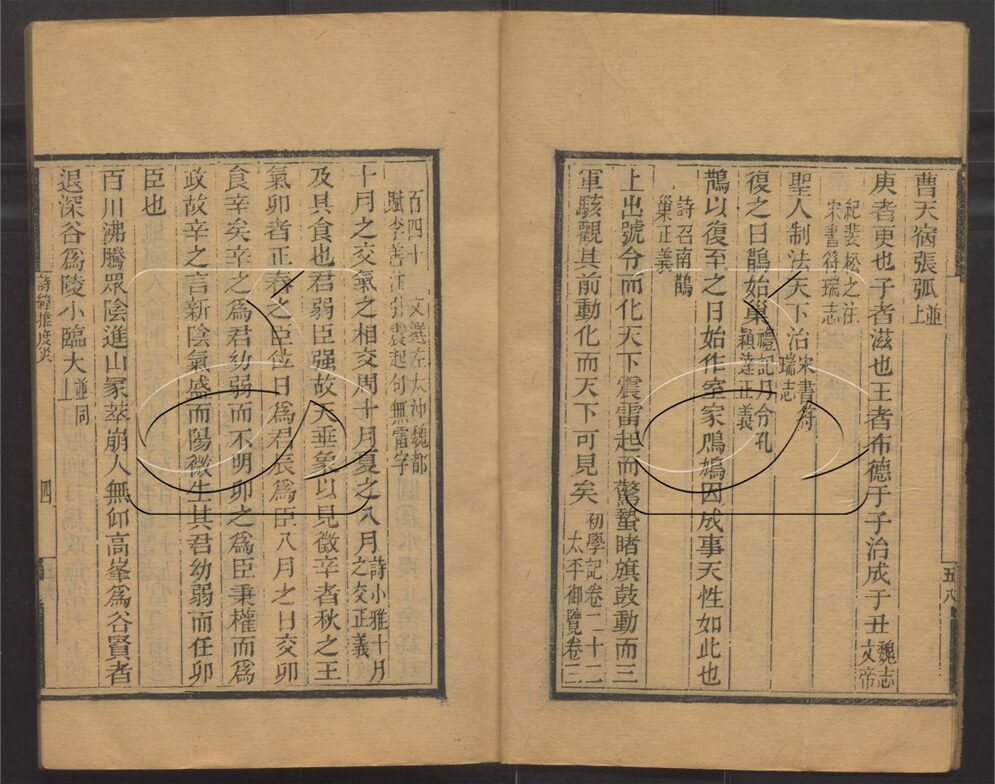 曹天宿張弧並上
庚者更也子者滋也王者布德于子治成于丑魏志文帝
紀裴松之注
宋書符瑞志
聖人制法天下治宋書符瑞志
復之日鵲始巢禮記月令孔穎達正義
鵲以復至之日始作室家鳲鳩因成事天性如此也
詩召南鵲
巢正義
上出號令而化天下震雷起而驚蟄睹旗鼓動而三
軍駭觀其前動化而天下可見矣初學記卷二十二太平御覽卷三
五八
百四十文選左太沖魏都
賦李善注引震起句無雷字
十月之交氣之相交周十月夏之八月詩小雅十月之交正義
及其食也君弱臣强故天垂象以見徵辛者秋之王
氣卯者正春之臣位日爲君辰爲臣八月之日交卯
食辛矣辛之爲君幼弱而不明卯之爲臣秉權而爲
政故辛之言新陰氣盛而陽微生其君幼弱而任卯
臣也
百川沸騰眾陰進山冢萃崩人無仰高峯爲谷賢者
退深谷爲陵小臨大並同上
詩緯推度災
四